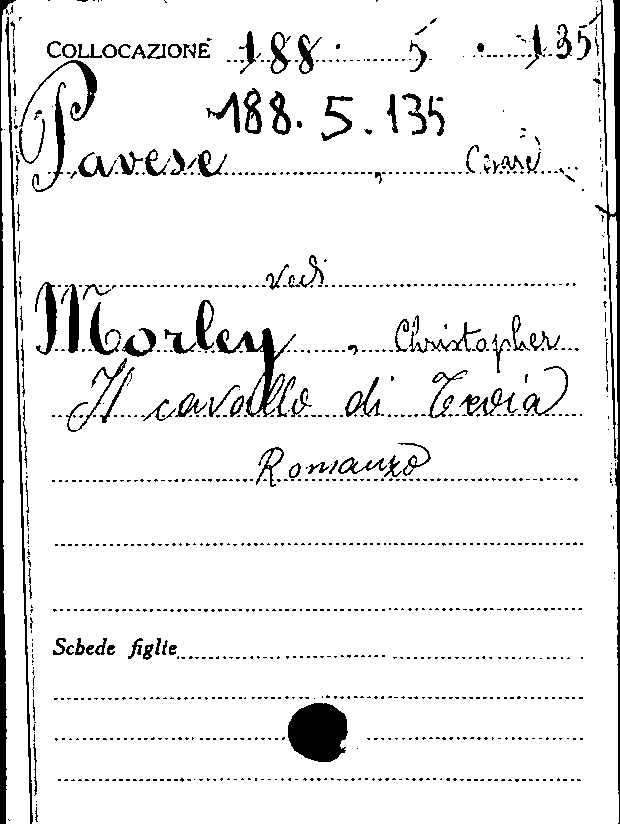 COLLOCAZIONE 188. 5. 135
188. 5. 135
Pavese, Cesare
vedi
Morley, Christopher
Il cavallo di Troia
Romanzo
Schede figlie